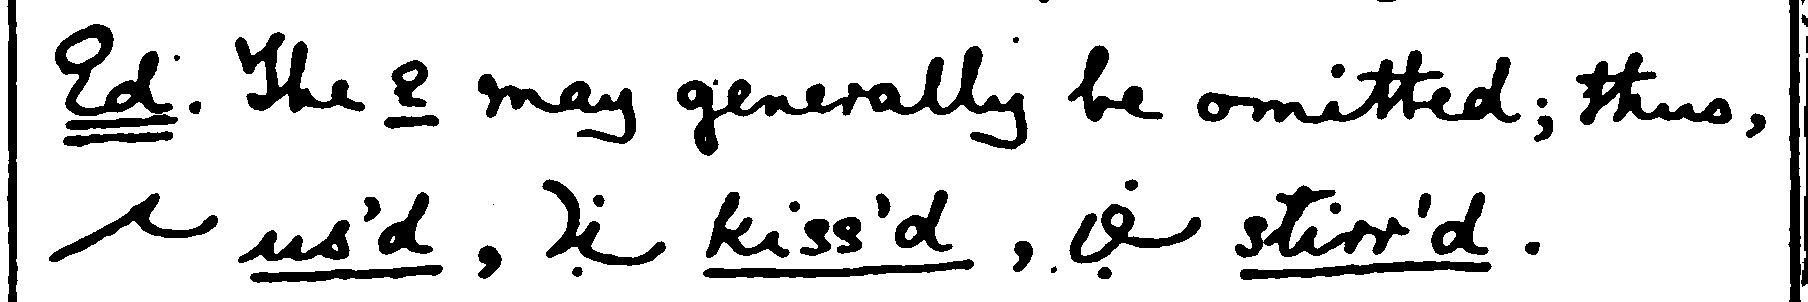 Ed. The e may generally be omitted; thus,
us'd, kiss'd, stirr'd.